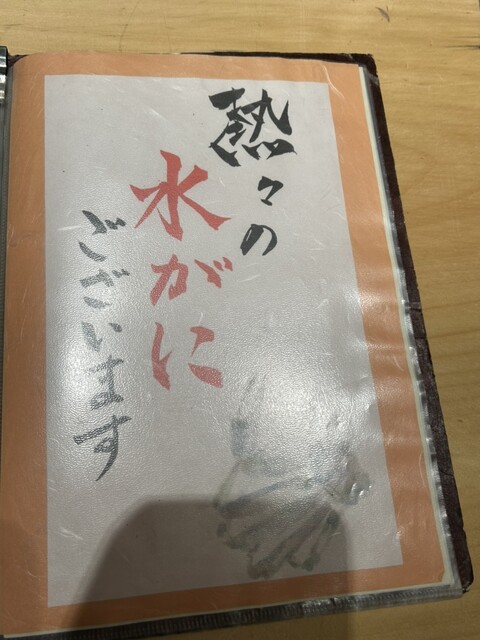 熱々の
水がに
ございます